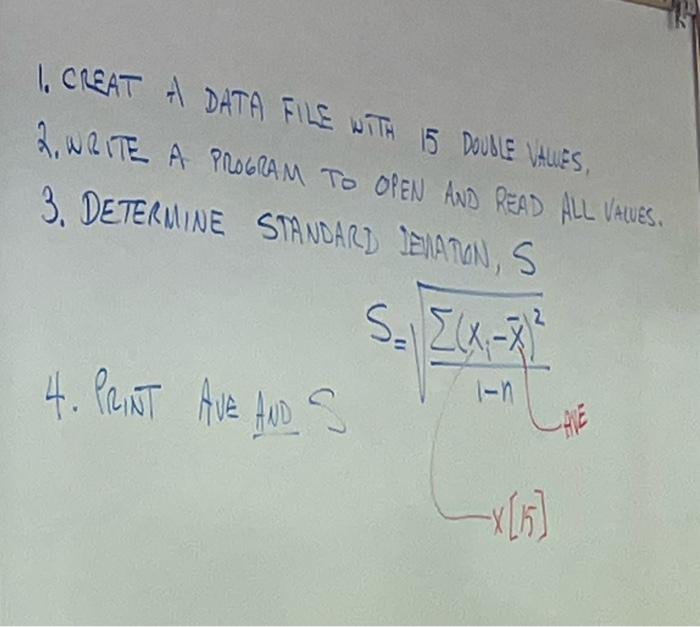 1. CREAT A DATA FILE WITH 15 DOUBLE VALUES.
2. WRITE A PROGRAM TO OPEN AND READ ALL VALUES.
3. DETERMINE STANDARD DEVIATION, S
S = √(Σ(xᵢ-x̄)² / 1-n)
AVE
4. PRINT AVE AND S
x[15]